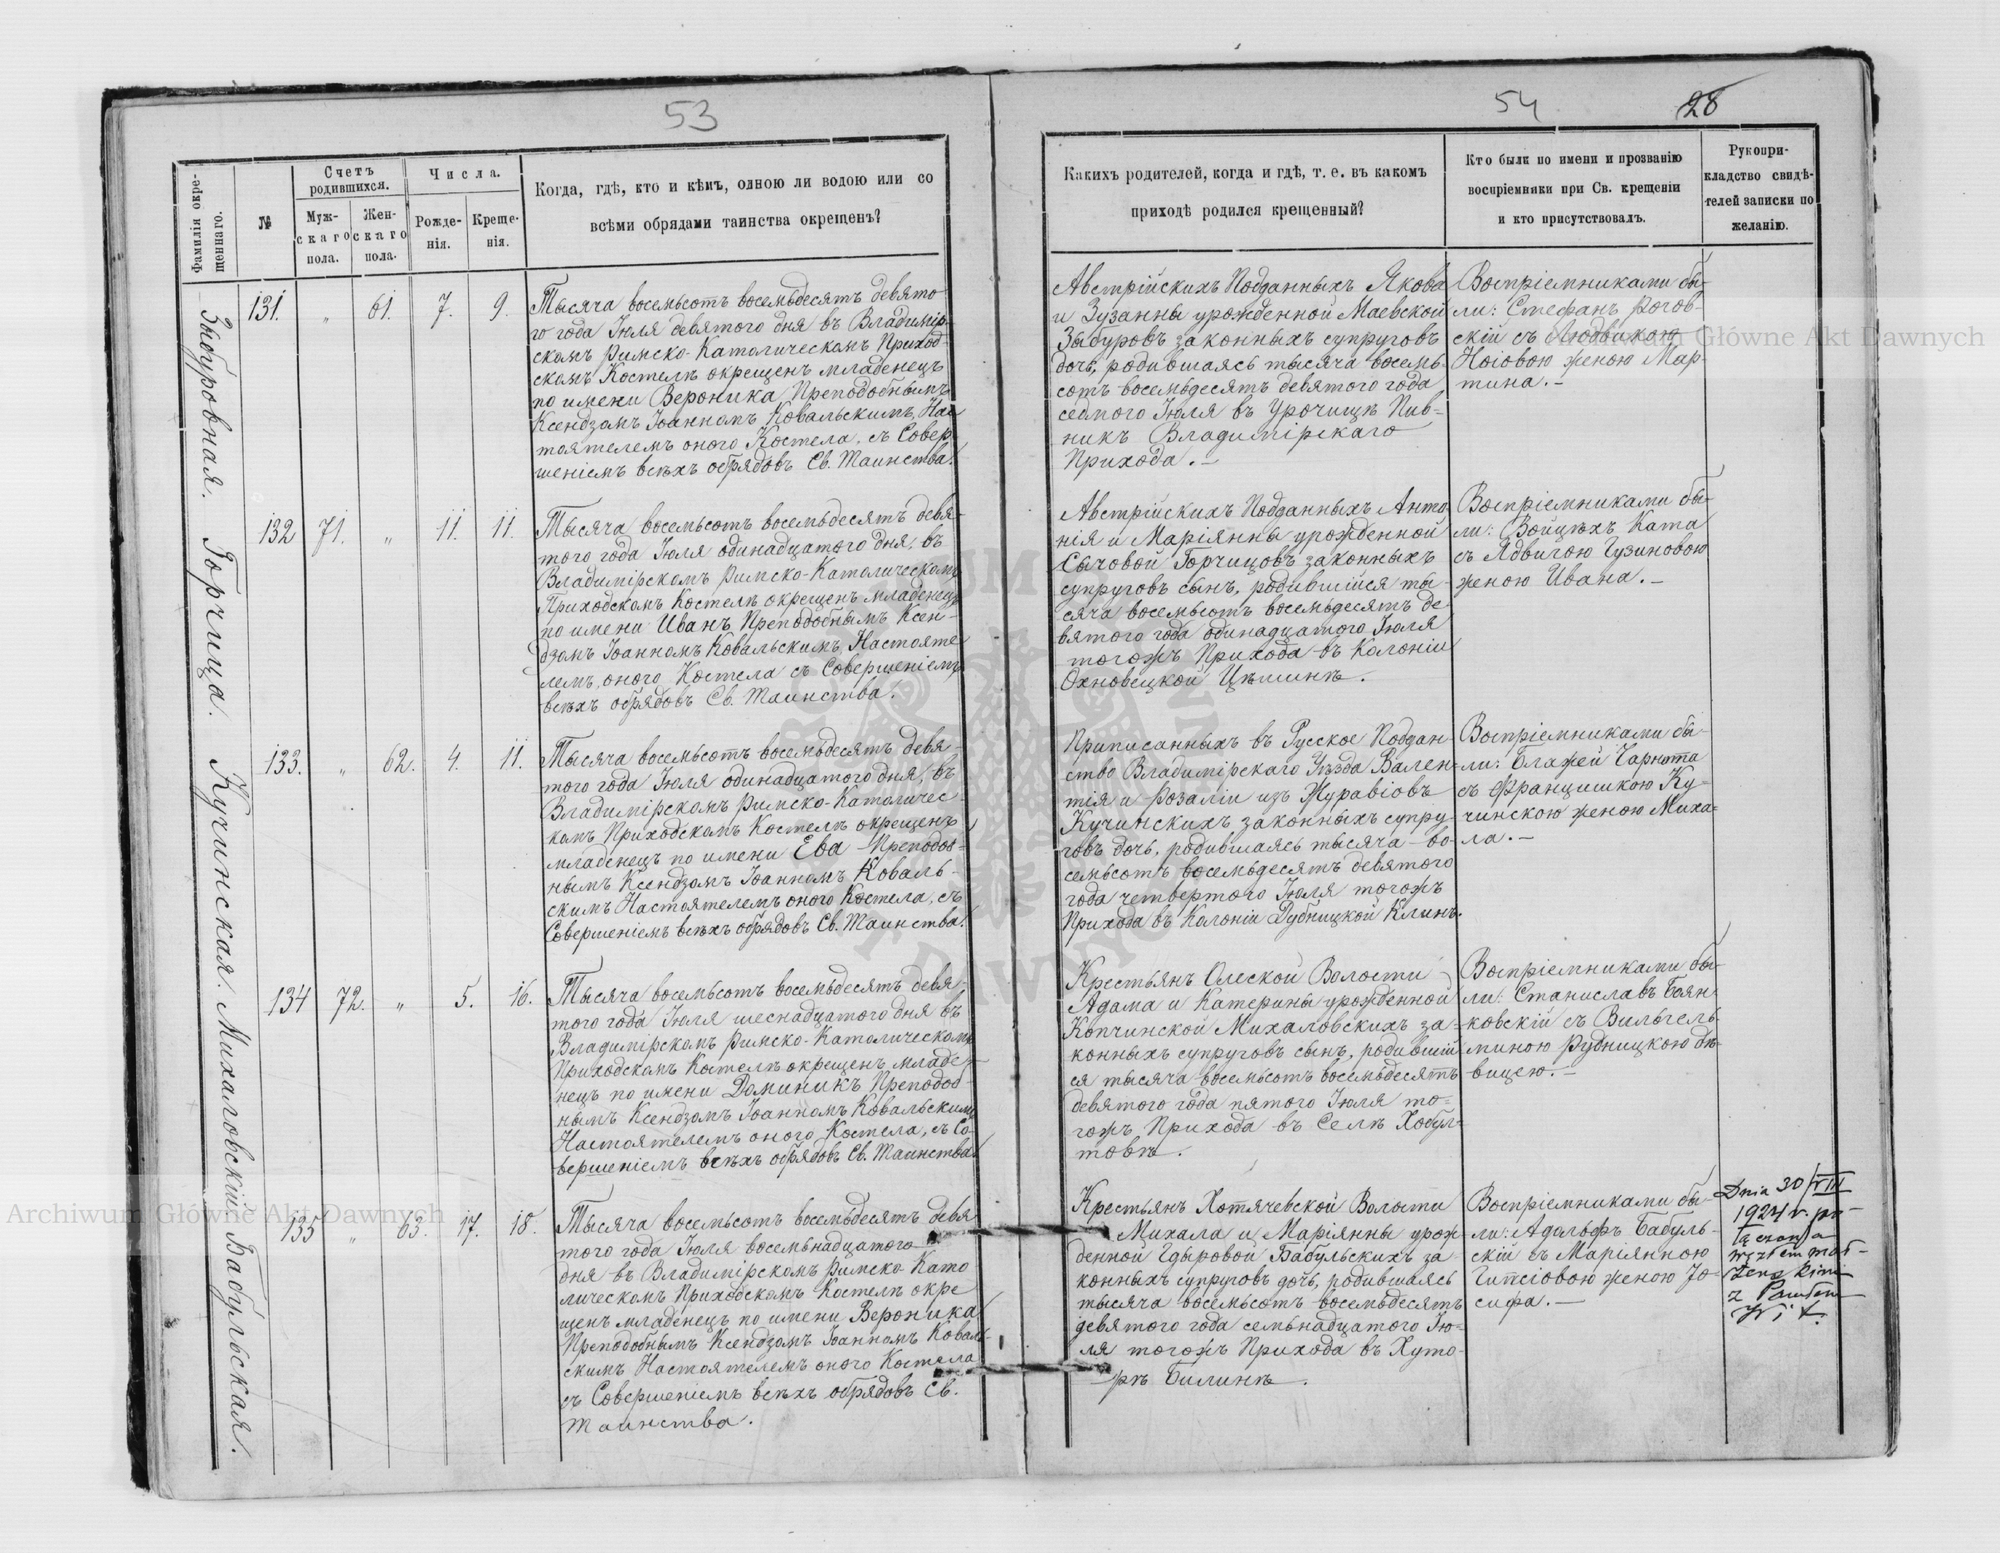 53
Фамилія окрещеннаго.
№
Счетъ родившихся.
Мужскаго пола.
Женскаго пола.
Числа.
Рожденія.
Крещенія.
Когда, гдѣ, кто и кѣмъ, одною ли водою или со
всѣми обрядами таинства окрещенъ?
Забуровная.
131.
„
61.
7.
9.
Тысяча восемьсотъ восемьдесятъ девято-
го года Іюля девятого дня въ Владимір-
скомъ Римско-Католическомъ Приход-
скомъ Костелѣ окрещенъ младенецъ
по имени Вероника Преподобнымъ
Ксендзомъ Іоанномъ Ковальскимъ, Нас-
тоятелемъ оного Костела, съ Совер-
шеніемъ всѣхъ обрядовъ Св. Таинства.
Горчица.
132
71.
„
11.
11.
Тысяча восемьсотъ восемьдесятъ девя-
того года Іюля одинадцатого дня, въ
Владимірскомъ Римско-Католическомъ
Приходскомъ Костелѣ окрещенъ младенецъ
по имени Иванъ, Преподобнымъ Ксен-
дзомъ Іоанномъ Ковальскимъ, Настояте-
лемъ, оного Костела съ Совершеніемъ
всѣхъ обрядовъ Св. Таинства.
Кучинская.
133.
„
62.
4.
11.
Тысяча восемьсотъ восемьдесятъ девя-
того года Іюля одинадцатого дня, въ
Владимірскомъ Римско-Католичес-
комъ Приходскомъ Костелѣ окрещенъ
младенецъ по имени Ева Преподоб-
нымъ Ксендзомъ Іоанномъ Коваль-
скимъ Настоятелемъ оного Костела, съ
Совершеніемъ всѣхъ обрядовъ Св. Таинства.
Михаловскій.
134
72.
„
5.
16.
Тысяча восемьсотъ восемьдесятъ девя-
того года Іюля шеснадцатого дня въ
Владимірскомъ Римско-Католическомъ
Приходскомъ Костелѣ окрещенъ младе-
нецъ по имени Доминикъ Преподоб-
нымъ Ксендзомъ Іоанномъ Ковальскимъ
Настоятелемъ оного Костела, съ Со-
вершеніемъ всѣхъ обрядовъ Св. Таинства
Бабульская.
135
„
63.
17.
18.
Тысяча восемьсотъ восемьдесятъ девя
того года Іюля восемьнадцатого
дня въ Владимірскомъ Римско-Като
лическомъ Приходскомъ Костелѣ окре
щенъ младенецъ по имени Вероника
Преподобнымъ Ксендзомъ Іоанномъ Коваль-
скимъ Настоятелемъ оного Костела
съ Совершеніемъ всѣхъ обрядовъ Св.
Таинства.
54
28
Какихъ родителей, когда и гдѣ, т. е. въ какомъ
приходѣ родился крещенный?
Кто были по имени и прозванію
воспріемники при Св. крещеніи
и кто присутствовалъ.
Рукопри-
кладство свидѣ-
телей записки по
желанію.
Австрійскихъ Подданныхъ Якова
и Зузанны урожденной Маевской
Забуровъ законныхъ супруговъ
дочь, родившаясь тысяча восемь-
сотъ восемьдесятъ девятого года
седмого Іюля въ Урочищѣ Пив-
никъ Владимірскаго
Прихода.—
Воспріемниками бы-
ли: Стефанъ Рогов-
скій съ Людвикою
женою Мар-
тина.—
Австрійскихъ Подданныхъ Анто
нія и Маріянны урожденной
Сычовой Горчицовъ законныхъ
супруговъ сынъ, родившійся ты-
сяча восемьсотъ восемьдесятъ де
вятого года одинадцатого Іюля
тогожъ Прихода въ Колоніи
Охновецкой Цѣшинѣ.
Воспріемниками бы-
ли: Войцѣхъ Ката
съ Ядвигою Гузиновою
женою Ивана.—
Приписанныхъ въ Русское Поддан-
ство Владимірскаго Уѣзда Вален-
тія и Розаліи изъ Журавіовъ
Кучинскихъ законныхъ супру-
говъ дочь, родившаясь тысяча во-
семьсотъ восемьдесятъ девятого
года четвертого Іюля тогожъ
Прихода въ Колоніи Дубницкой Клинъ.
Воспріемниками бы-
ли: Блажей Чарнота
съ Францишкою Ку-
чинскою женою Миха-
ла.—
Крестьянъ Олеской Волости
Адама и Катерины урожденной
Копчинской Михаловскихъ за-
конныхъ супруговъ сынъ, родившій
ся тысяча восемьсотъ восемьдесятъ
девятого года пятого Іюля то-
гожъ Прихода въ Селѣ Хобул-
товѣ.
Воспріемниками бы-
ли: Станиславъ Боян-
ковскій съ Вильгель-
миною Рудницкою дѣ-
вицею.—
Крестьянъ Хотячевской Волости
Михала и Маріянны урож
денной Гдыровой Бабульскихъ за
конныхъ супруговъ дочь, родившаясь
тысяча восемьсотъ восемьдесятъ
девятого года семьнадцатого Ію-
ля тогожъ Прихода въ Хуто-
рѣ Билинѣ.
Воспріемниками бы-
ли: Адольфъ Бабуль-
скій съ Маріянною
Гипсіовою женою Іо-
сифа.—
Dnia 30/VIII
1924 r. po-
łączona
węzłem mał-
żeńskim
z Pawłem
Archiwum Główne Akt Dawnych
Archiwum Główne Akt Dawnych